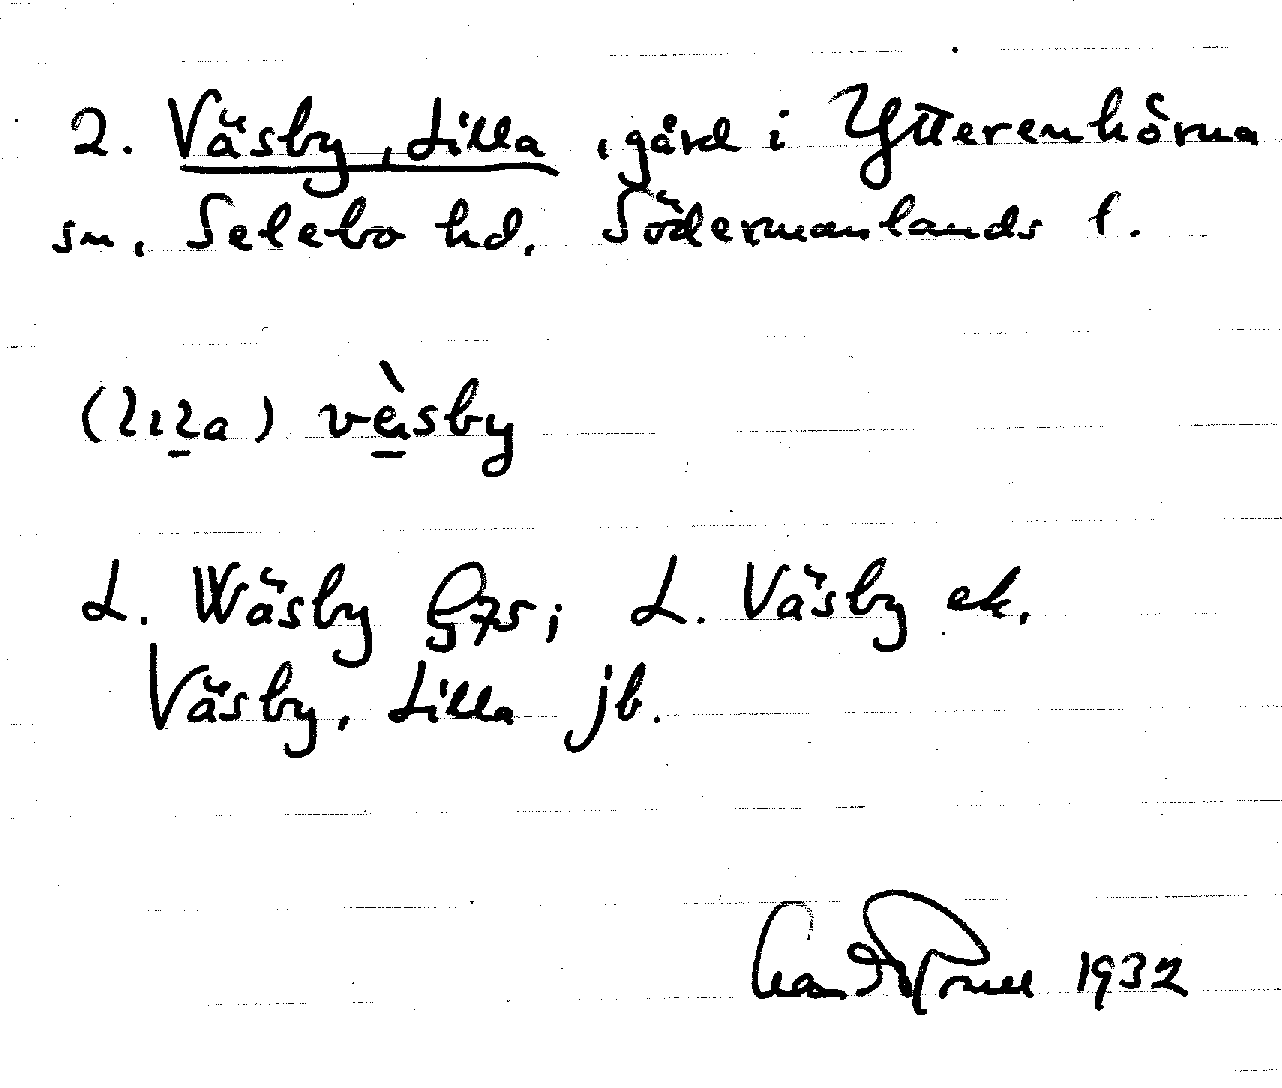 2. Väsby, Lilla, gård i Ytterenhörna
sn, Selebo hd. Södermanlands l.
(lıla) vèsby
L. Wäsby G75; L. Väsby ek.
Väsby, Lilla jb.
1932